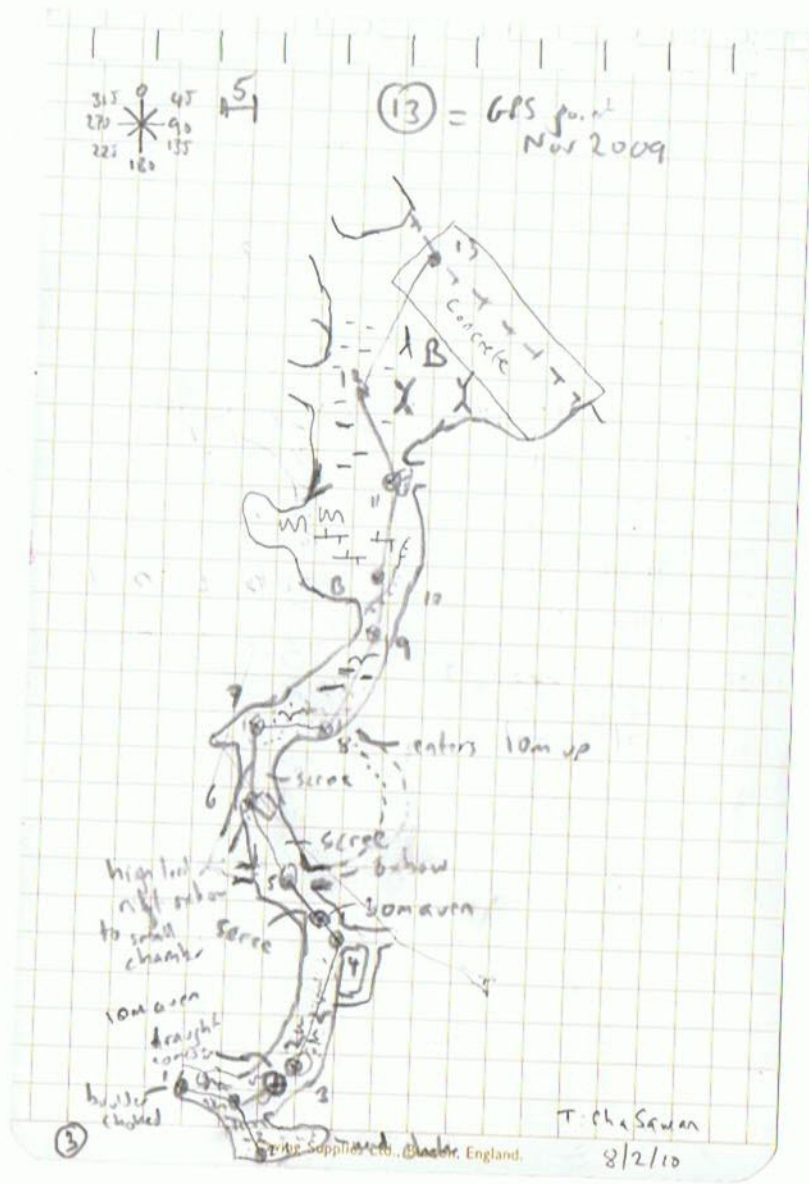 0
315 45
270 90
225 135
180
5
13 = GPS point
Nov 2009
13
Concrete
B
11
B
10
9
7
8
enters 10m up
scree
6
scree
oxbow
high level
to small
chamber
5
scree
4
10m aven
draught
1
boulder
choked
3
2
3
Supplies Ltd., England.
8/2/10